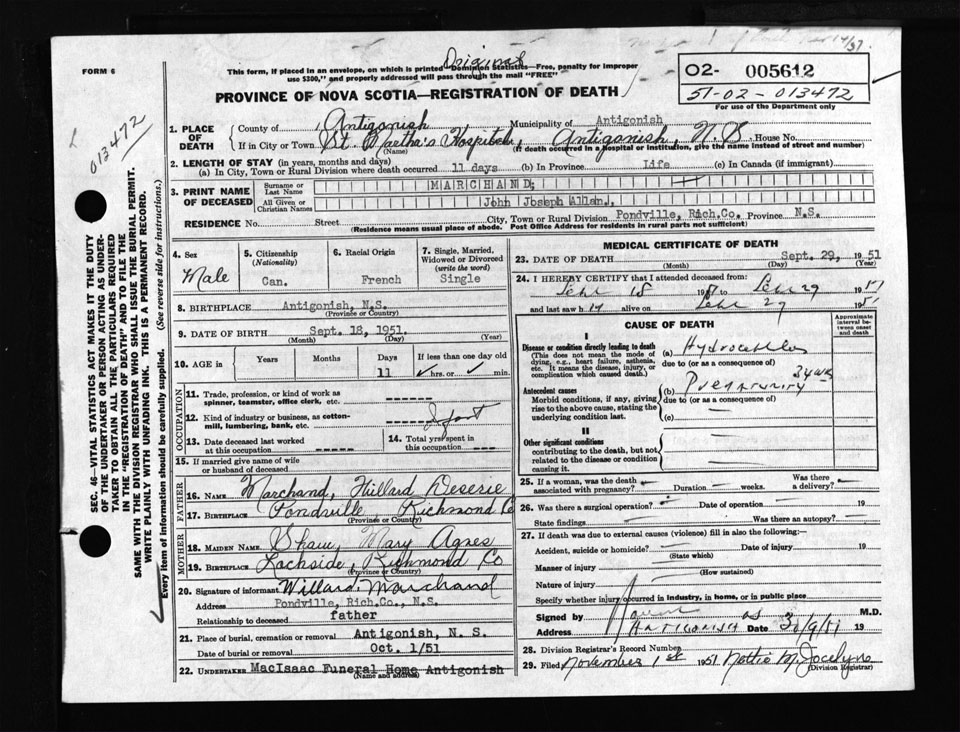 Original
FORM 6
This form, if placed in an envelope, on which is printed "Dominion Statistics—Free, penalty for improper
use $300," and properly addressed will pass through the mail "FREE"
PROVINCE OF NOVA SCOTIA—REGISTRATION OF DEATH
02- 005612
51-02-013472
For use of the Department only
013472
1. PLACE OF DEATH
County of Antigonish Municipality of Antigonish
If in City or Town St. Martha's Hospital, Antigonish, N.S. House No.
(Name) (If death occurred in a hospital or institution, give the name instead of street and number)
2. LENGTH OF STAY (in years, months and days)
(a) In City, Town or Rural Division where death occurred 11 days (b) In Province Life (c) In Canada (if immigrant)
3. PRINT NAME OF DECEASED
Surname or Last Name MARCHAND,
All Given or Christian Names John Joseph Allan,
RESIDENCE No. Street City, Town or Rural Division Pondville, Rich.Co. Province N.S.
(Residence means usual place of abode. Post Office Address for residents in rural parts not sufficient)
SEC. 46—VITAL STATISTICS ACT MAKES IT THE DUTY
OF THE UNDERTAKER OR PERSON ACTING AS UNDER-
TAKER TO OBTAIN ALL THE PARTICULARS REQUIRED
IN THE "REGISTRATION OF DEATH" AND TO FILE THE
SAME WITH THE DIVISION REGISTRAR WHO SHALL ISSUE THE BURIAL PERMIT.
WRITE PLAINLY WITH UNFADING INK. THIS IS A PERMANENT RECORD.
Every item of information should be carefully supplied. (See reverse side for instructions.)
4. Sex Male
5. Citizenship (Nationality) Can.
6. Racial Origin French
7. Single, Married, Widowed or Divorced (write the word) Single
8. BIRTHPLACE Antigonish, N.S.
(Province or Country)
9. DATE OF BIRTH Sept. 18, 1951.
(Month) (Day) (Year)
10. AGE in Years Months Days 11 If less than one day old hrs. or min.
OCCUPATION
11. Trade, profession, or kind of work as
spinner, teamster, office clerk, etc.
12. Kind of industry or business, as cotton-
mill, lumbering, bank, etc. Infant
13. Date deceased last worked
at this occupation
14. Total yrs. spent in
this occupation
15. If married give name of wife
or husband of deceased
FATHER
16. NAME Marchand, Deserie
17. BIRTHPLACE Pondville, Richmond Co
(Province or Country)
MOTHER
18. MAIDEN NAME Shaw, Mary Agnes
19. BIRTHPLACE Lochside, Richmond Co
(Province or Country)
20. Signature of informant Willard Marchand
Address Pondville, Rich.Co., N.S.
Relationship to deceased father
21. Place of burial, cremation or removal Antigonish, N. S.
Date of burial or removal Oct. 1/51
22. UNDERTAKER MacIsaac Funeral Home Antigonish
(Name and address)
MEDICAL CERTIFICATE OF DEATH
23. DATE OF DEATH Sept. 29, 1951
(Month) (Day) (Year)
24. I HEREBY CERTIFY that I attended deceased from:
18 1951 to 29 1951
and last saw h alive on 29 1951
CAUSE OF DEATH
Approximate interval between onset and death
I
Disease or condition directly leading to death (a) Hydrocephalus
(This does not mean the mode of due to (or as a consequence of)
dying, e.g., heart failure, asthenia,
etc. It means the disease, injury, or
complication which caused death.)
Antecedent causes (b) Prematurity 34 wks
Morbid conditions, if any, giving due to (or as a consequence of)
rise to the above cause, stating the
underlying condition last. (c) —
II
Other significant conditions
contributing to the death, but not
related to the disease or condition
causing it.
25. If a woman, was the death Was there
associated with pregnancy? Duration weeks. a delivery?
26. Was there a surgical operation? Date of operation 19
State findings Was there an autopsy?
27. If death was due to external causes (violence) fill in also the following:
Accident, suicide or homicide? Date of injury 19
(State which)
Manner of injury
(How sustained)
Nature of injury
Specify whether injury occurred in industry, in home, or in public place
Signed by M.D.
Address Antigonish NS Date 30/9/51 19
28. Division Registrar's Record Number
29. Filed November 1st 1951 Nottie M. Jocelyne
(Division Registrar)